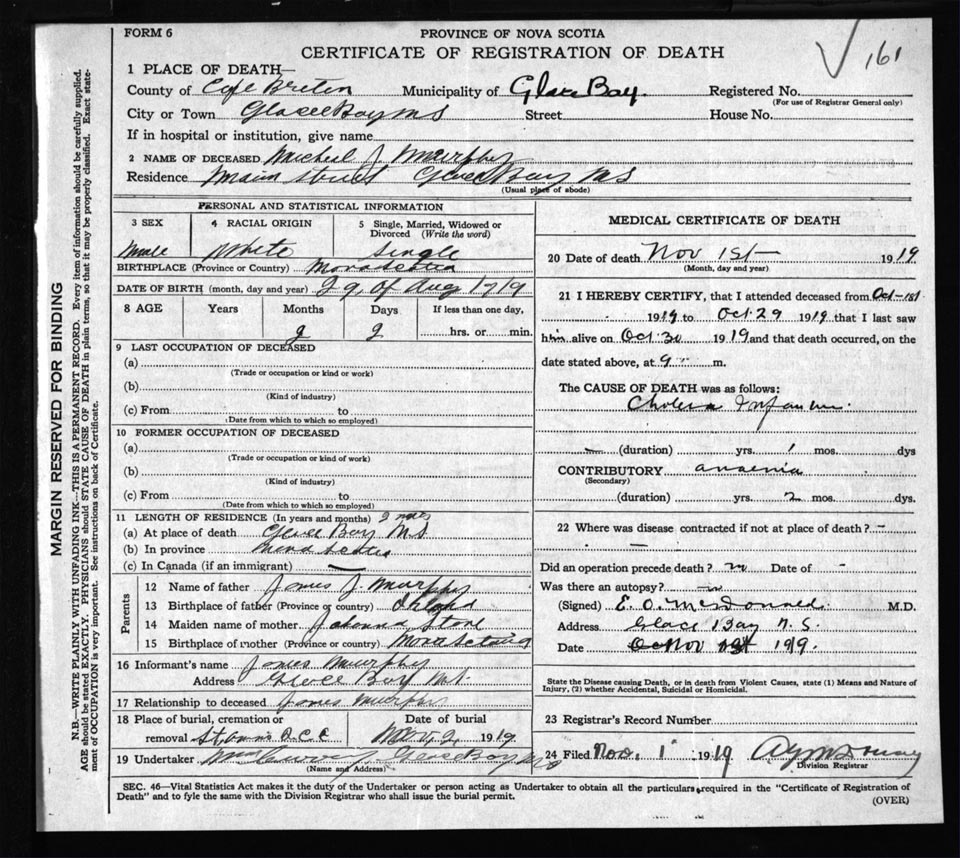 FORM 6
PROVINCE OF NOVA SCOTIA
CERTIFICATE OF REGISTRATION OF DEATH
161
1 PLACE OF DEATH—
County of Cape Breton Municipality of Glace Bay. Registered No.
(For use of Registrar General only)
City or Town Glace Bay NS Street House No.
If in hospital or institution, give name
2 NAME OF DECEASED Micheal J Murphy
Residence Main Street Glace Bay NS
(Usual place of abode)
PERSONAL AND STATISTICAL INFORMATION
3 SEX 4 RACIAL ORIGIN 5 Single, Married, Widowed or Divorced (Write the word)
Male White Single
BIRTHPLACE (Province or Country) Nova Scotia
DATE OF BIRTH (month, day and year) 29 of Aug 1919
8 AGE Years Months Days If less than one day,
2 2 hrs. or min.
9 LAST OCCUPATION OF DECEASED
(a)
(Trade or occupation or kind or work)
(b)
(Kind of industry)
(c) From to
(Date from which to which so employed)
10 FORMER OCCUPATION OF DECEASED
(a)
(Trade or occupation or kind of work)
(b)
(Kind of industry)
(c) From to
(Date from which to which so employed)
11 LENGTH OF RESIDENCE (In years and months) 2 mos
(a) At place of death Glace Bay N.S.
(b) In province Nova Scotia
(c) In Canada (if an immigrant) —
Parents
12 Name of father James J Murphy
13 Birthplace of father (Province or country)
14 Maiden name of mother Johanna Stone
15 Birthplace of mother (Province or country) Nova Scotia
16 Informant's name James Murphy
Address Glace Bay NS
17 Relationship to deceased James Murphy
18 Place of burial, cremation or removal St Anns R.C.C Date of burial Nov 2 1919
19 Undertaker Glace Bay NS
(Name and Address)
MEDICAL CERTIFICATE OF DEATH
20 Date of death Nov 1st— 1919
(Month, day and year)
21 I HEREBY CERTIFY, that I attended deceased from Oct—1st
1919 to Oct. 29 1919 that I last saw
him alive on Oct 30 1919 and that death occurred, on the
date stated above, at 9 m.
The CAUSE OF DEATH was as follows:
Cholera Infantum
(duration) yrs. 1 mos. dys
CONTRIBUTORY anaemia
(Secondary)
(duration) yrs. 2 mos. dys.
22 Where was disease contracted if not at place of death? —
Did an operation precede death? no Date of -
Was there an autopsy? no
(Signed) E. O. McDonald. M.D.
Address Glace Bay N.S.
Date Nov 1st 1919.
State the Disease causing Death, or in death from Violent Causes, state (1) Means and Nature of
Injury, (2) whether Accidental, Suicidal or Homicidal.
23 Registrar's Record Number
24 Filed Nov. 1 1919
Division Registrar
SEC. 46—Vital Statistics Act makes it the duty of the Undertaker or person acting as Undertaker to obtain all the particulars required in the "Certificate of Registration of
Death" and to fyle the same with the Division Registrar who shall issue the burial permit.
(OVER)
MARGIN RESERVED FOR BINDING
N.B.—WRITE PLAINLY WITH UNFADING INK—THIS IS A PERMANENT RECORD. Every item of information should be carefully supplied.
AGE should be stated EXACTLY. PHYSICIANS should STATE CAUSE OF DEATH in plain terms, so that it may be properly classified. Exact state-
ment of OCCUPATION is very important. See instructions on back of Certificate.